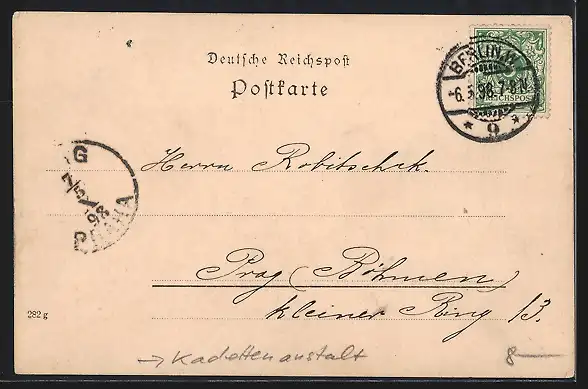 Deutsche Reichspost
Postkarte
BERLIN.W.
-6.5.98.7-8N
* 9 *
REICHSPOST
G
7/5
98
PRAHA
Herrn Robitschek.
Prag (Böhmen)
kleiner Ring 13.
282 g
→ Kadettenanstalt
8—